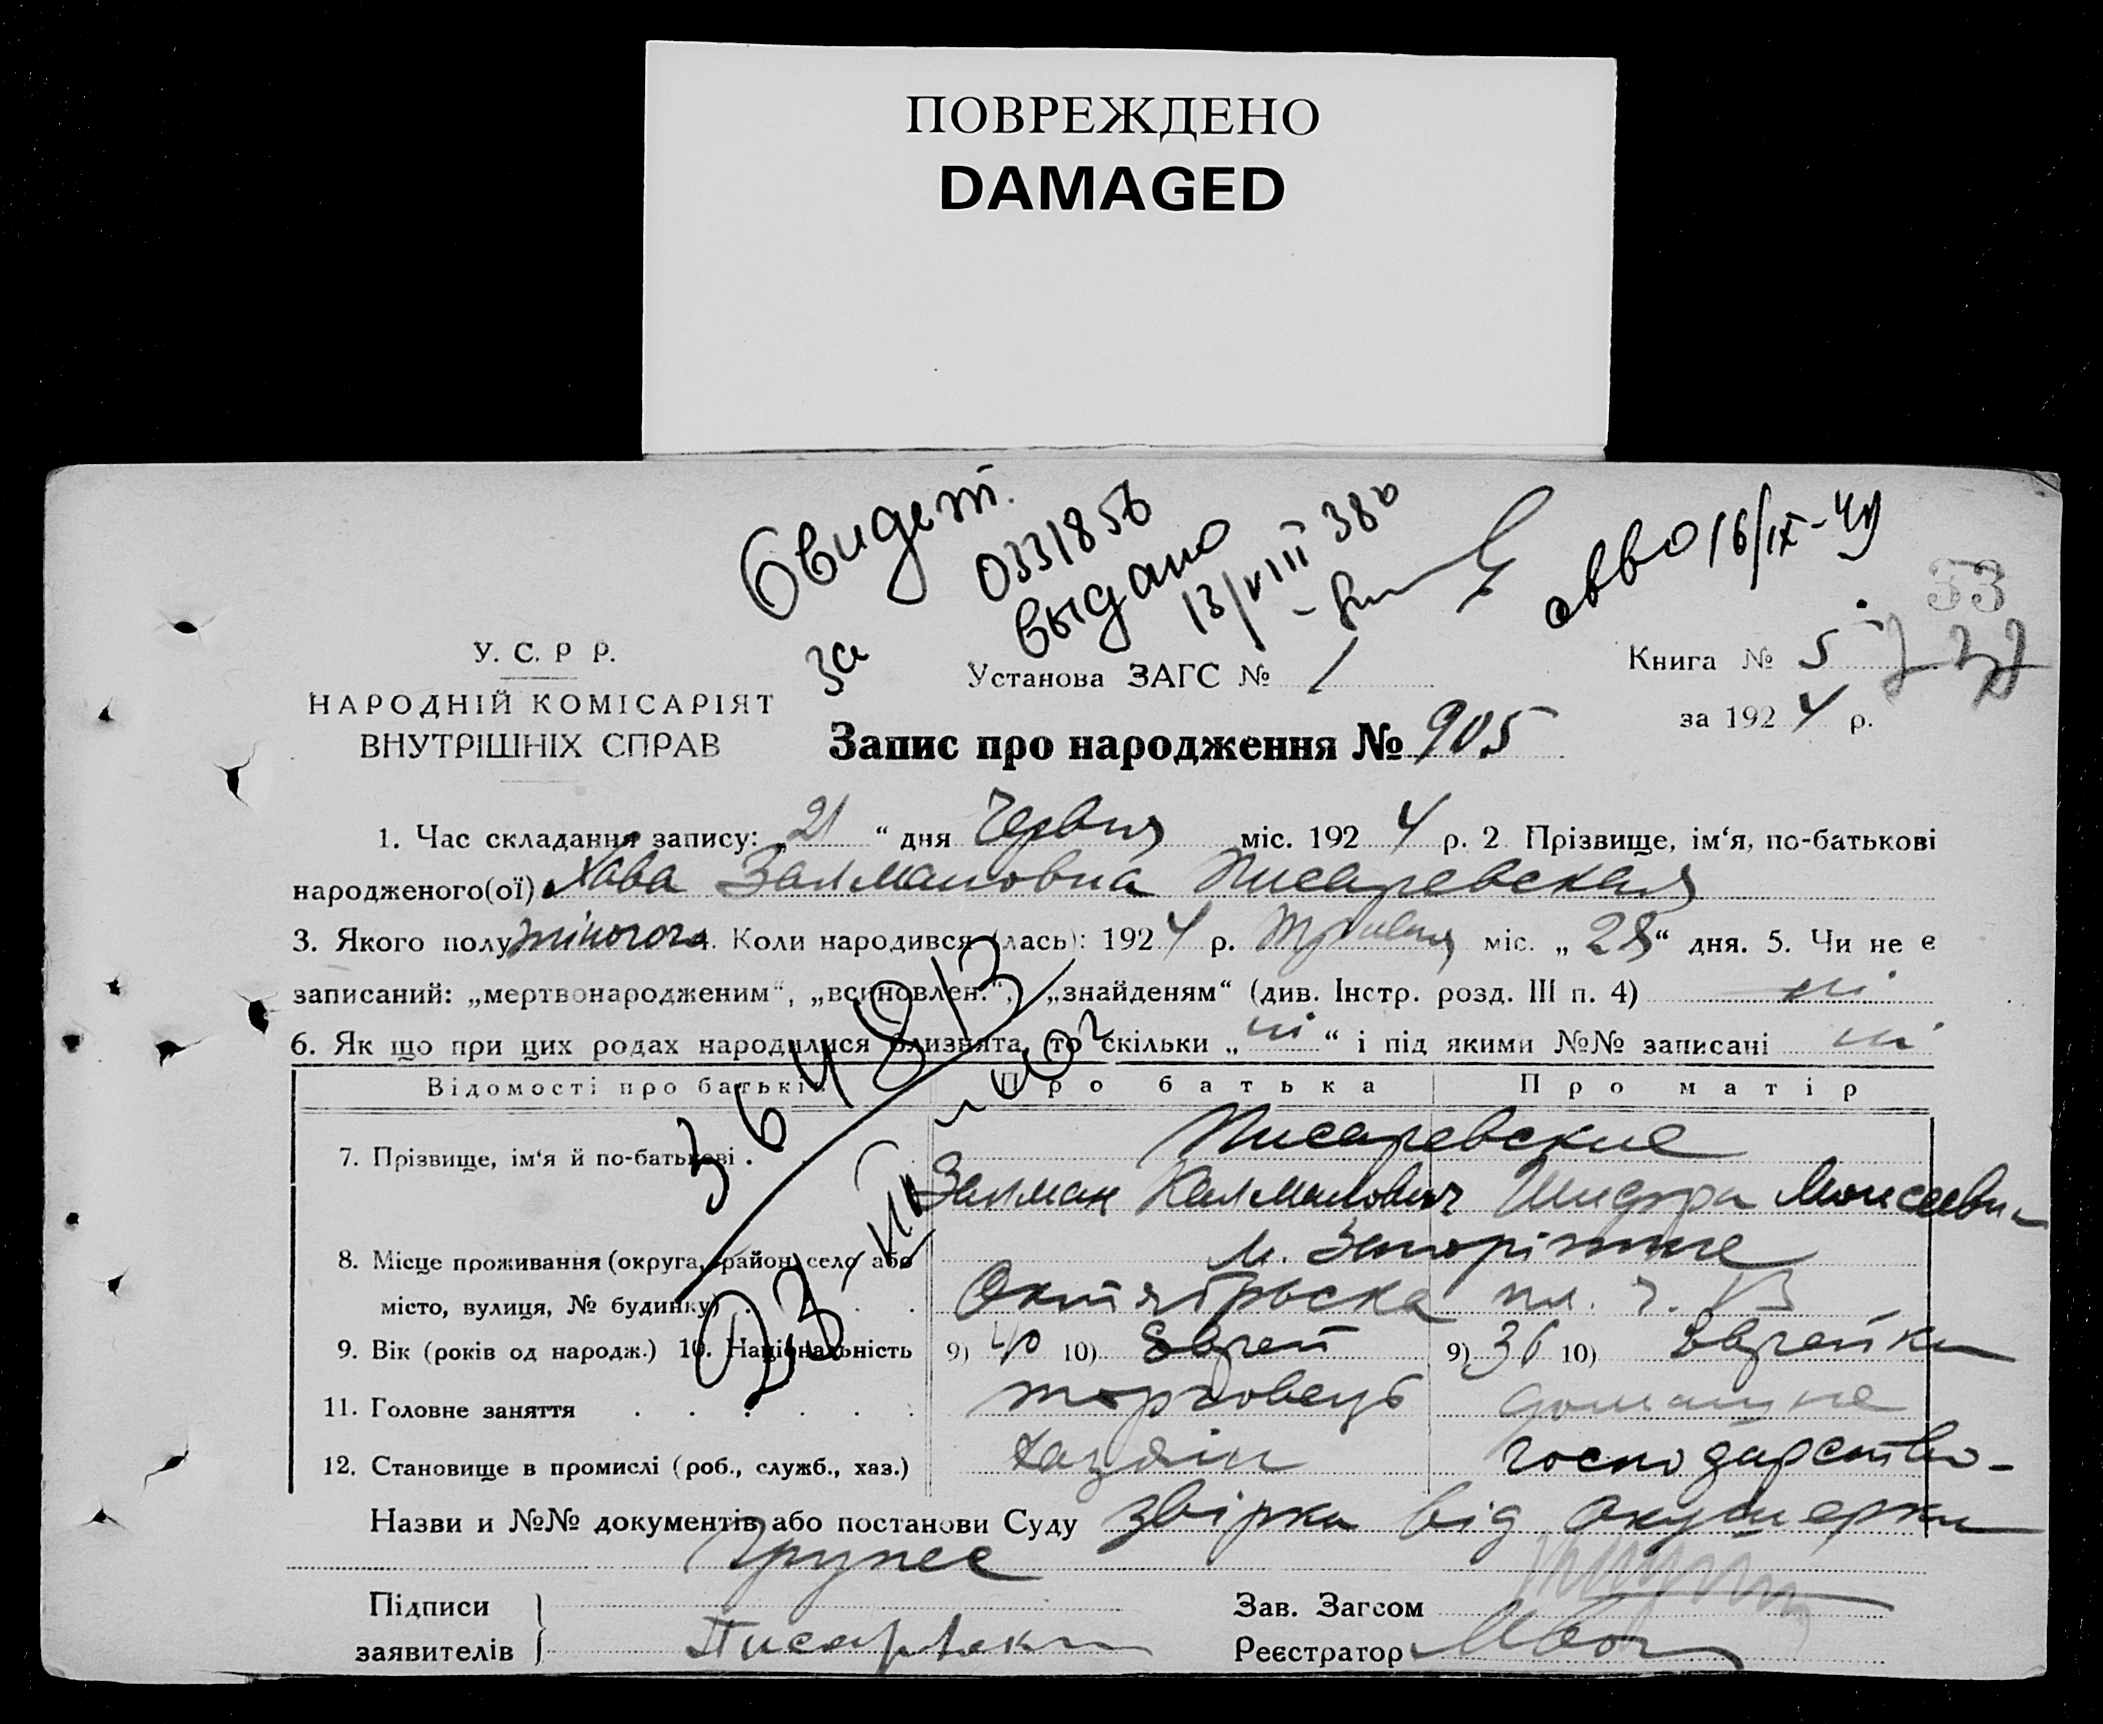 ПОВРЕЖДЕНО
DAMAGED
Свидет.
за 0331856
выдано
13/VIII 38
16/IX-49
53
У. С. Р Р.
НАРОДНІЙ КОМІСАРІЯТ
ВНУТРІШНІХ СПРАВ
Установа ЗАГС № 1
Книга № 5
за 1924 р.
Запис про народження № 905
1. Час складання запису: „21“ дня Червня міс. 1924 р. 2 Прізвище, ім‘я, по-батькові
народженого(ої) Хава Залмановна Писаревская
3. Якого полу жіночого 4. Коли народився (лась): 1924 р. травня міс. „28“ дня. 5. Чи не є
записаний: „мертвонародженим“, „всиновлен.“, „знайденям“ (див. Інстр. розд. III п. 4) ні
6. Як що при цих родах народилися близнята, то скільки „ні“ і під якими №№ записані ні
364813
Відомості про батьків Про батька Про матір
7. Прізвище, ім‘я й по-батькові . Писаревские
Залман Калманович Шифра Моисеевна
8. Місце проживання (округа, район, село або м. Запоріжже
місто, вулиця, № будинку) . Октябрьска пл. ч. 13
9. Вік (років од народж.) 10. Національність 9) 40 10) Еврей 9) 36 10) Еврейка
11. Головне заняття . . . . . . торговець домашнє
12. Становище в промислі (роб., служб., хаз.) хазяін господарство-
Назви и №№ документів або постанови Суду звірка від акушерки
Підписи
заявителів Писаревски
Зав. Загсом
Реєстратор